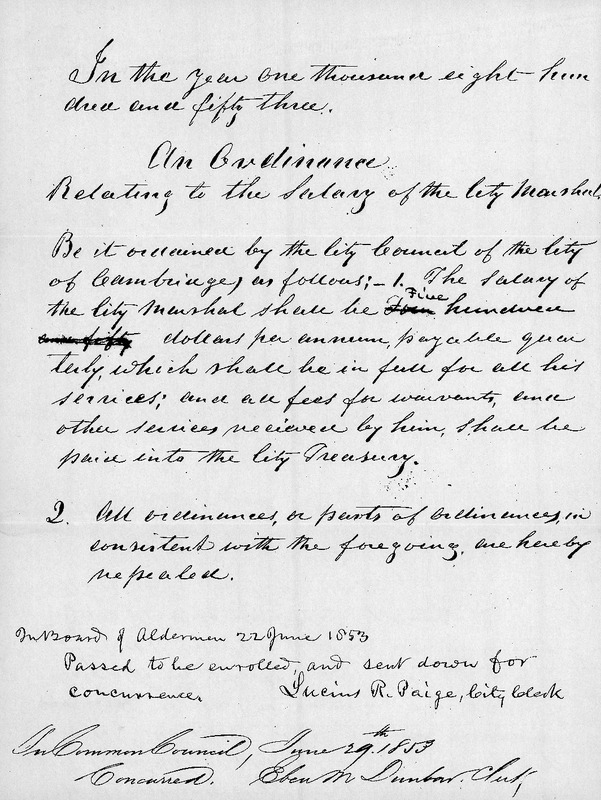 In the year one thousand eight hun
dred and fifty three.
An Ordinance
Relating to the Salary of the City Marshal.
Be it ordained by the City Council of the City
of Cambridge, as follows; – 1. The Salary of
the City Marshal shall be Four Five hundred
and fifty dollars per annum, payable quar
terly, which shall be in full for all his
services; and all fees for warrants, and
other services recieved by him, shall be
paid into the City Treasury.
2. All ordinances, or parts of ordinances, in
consistent with the foregoing, are hereby
repealed.
In Board of Aldermen 22 June 1853
Passed to be enrolled, and sent down for
concurrence. Lucius R. Paige, City Clerk
In Common Council, June 29th. 1853
Concurred. Eben M Dunbar. Clerk,